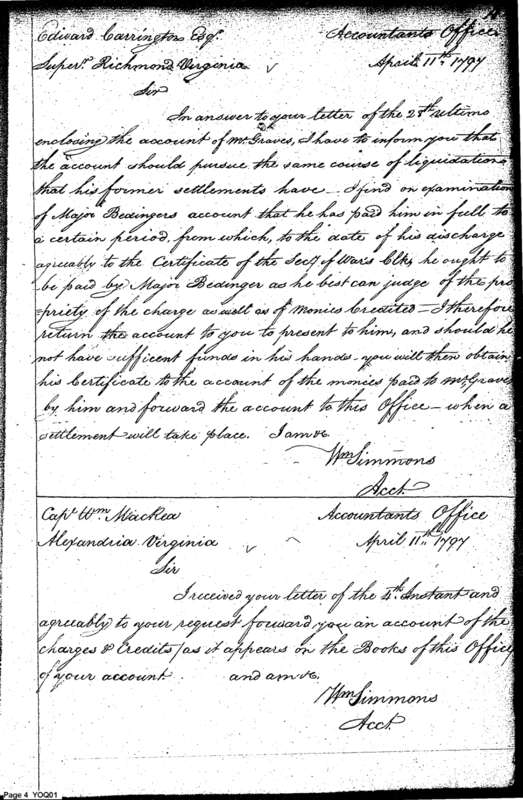 Edward Carrington Esqr. Accountants Office
Superr. Richmond Virginia April 11th. 1797
Sir
In answer to your letter of the 28th ultimo
enclosing the account of Mr Graves, I have to inform you that
the account should pursue the same course of liquidation
that his former settlements have - I find on examination
of Major Bedingers account that he has paid him in full to
a certain period, from which, to the date of his discharge
agreeably to the Certificate of the Secy. of War's Clk, he ought to
be paid by Major Bedinger as he best can judge of the pro
=priety of the charge as well as of Monies Credited - I therefore
return the account to you to present to him, and should he
not have sufficent funds in his hands - you will then obtain
his Certificate to the account of the monies paid to Mr. Graves
by him and forward the account to this Office - when a
settlement will take place. I am &c.
Wm Simmons
Acct.
Capt. Wm. MacRea Accountants Office
Alexandria Virginia April 11th. 1797
Sir
I received your letter of the 4th. Instant and
agreeably to your request forward you an account of the
charges & Credits / as it appears on the Books of this Office /
of your account. and am &c.
Wm Simmons
Acct.
Page 4 YOQ01